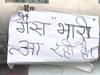 गैस" भारी
आ रही है